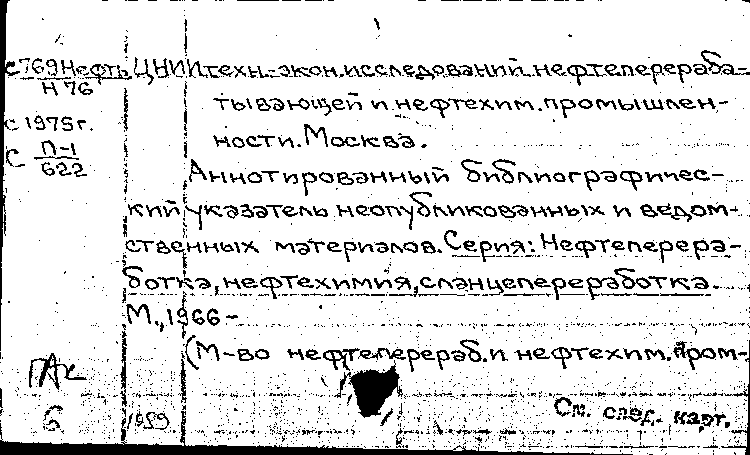 с769Нефть ЦНИИтехн.-экон.исследований нефтеперераба-
Н76
тывающей и нефтехим.промышлен-
с 1975г.
ности.Москва.
С П-1
622
Аннотированный библиографичес-
кий указатель неопубликованных и ведом-
ственных материалов. Серия: Нефтеперера-
ботка, нефтехимия, сланцепереработка.
М., 1966-
(М-во нефтеперераб. и нефтехим. пром-
ГАк
Б 1959
См. след. карт.